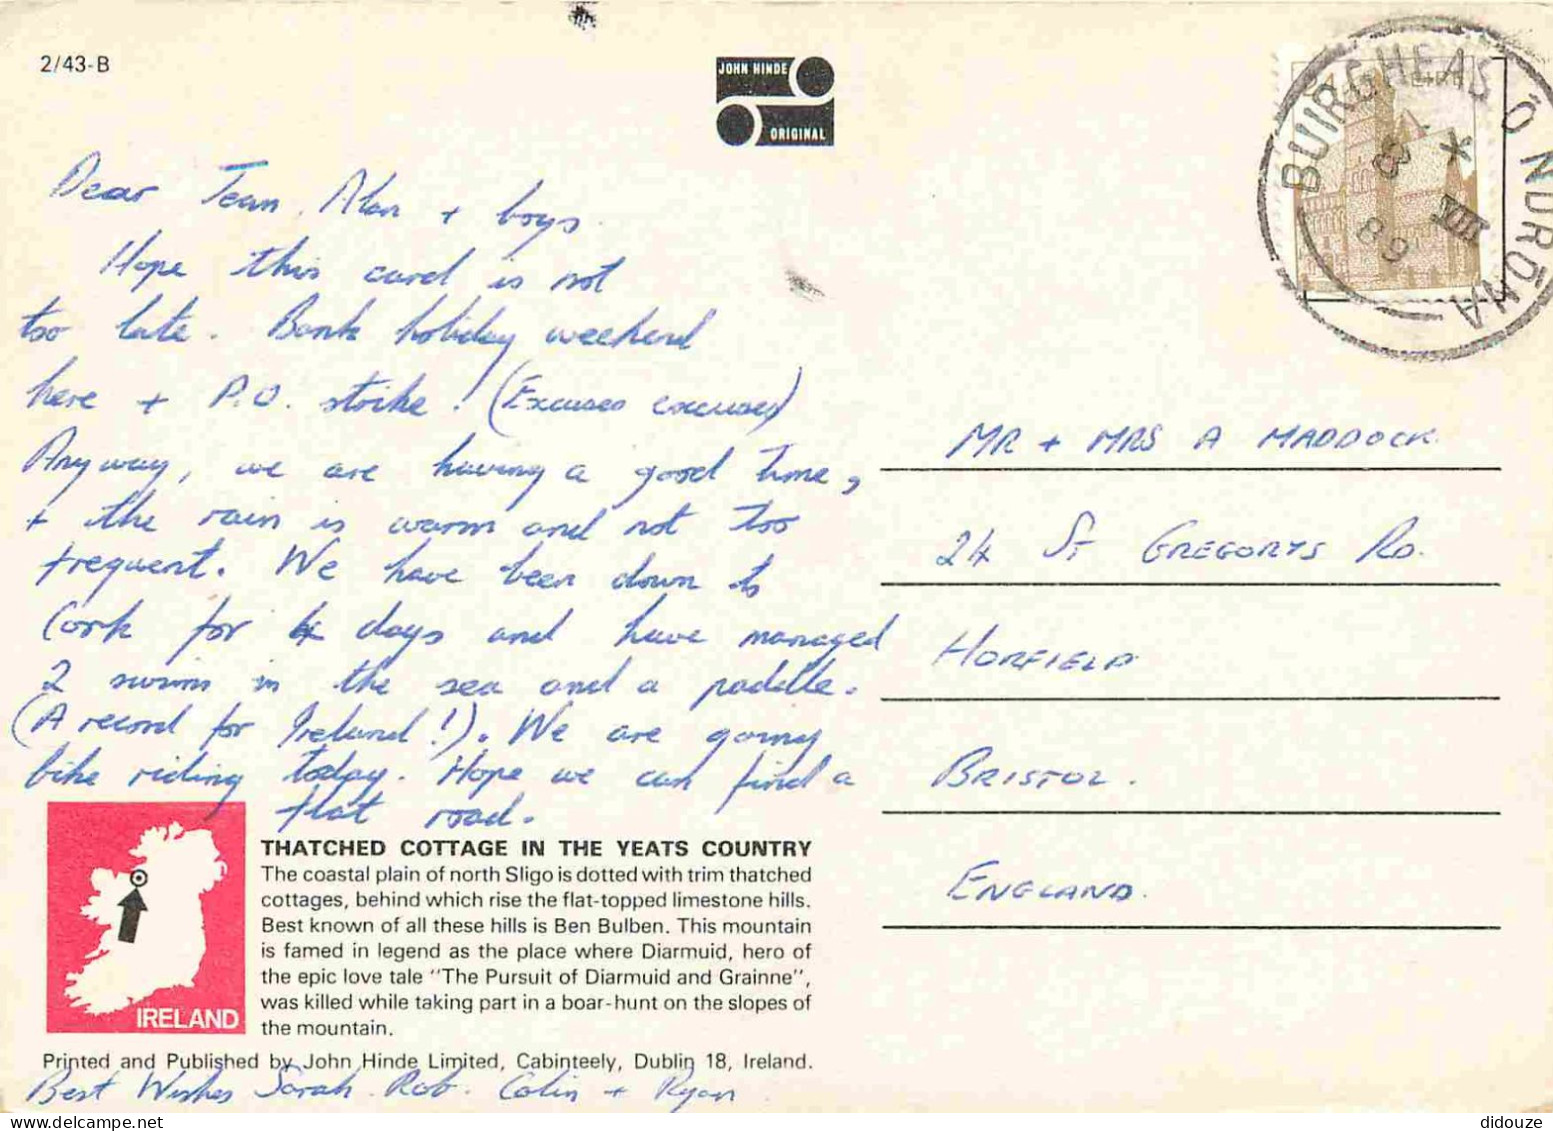 2/43-B
JOHN HINDE
ORIGINAL
BUIRGHEAS Ó NDRÓNA
8 VIII 89
Dear Jean, Alan + boys.
Hope this card is not
too late. Bank holiday weekend
here + P.O. strike! (Excuses excuses)
Anyway, we are having a good time,
+ the rain is warm and not too
frequent. We have been down to
Cork for 4 days and have managed
2 swims in the sea and a paddle.
(A record for Ireland!). We are going
bike riding today. Hope we can find a
flat road.
MR + MRS A MADDOCK
24 ST GREGORYS RD.
HORFIELD
BRISTOL.
ENGLAND.
IRELAND
THATCHED COTTAGE IN THE YEATS COUNTRY
The coastal plain of north Sligo is dotted with trim thatched
cottages, behind which rise the flat-topped limestone hills.
Best known of all these hills is Ben Bulben. This mountain
is famed in legend as the place where Diarmuid, hero of
the epic love tale "The Pursuit of Diarmuid and Grainne",
was killed while taking part in a boar-hunt on the slopes of
the mountain.
Printed and Published by John Hinde Limited, Cabinteely, Dublin 18, Ireland.
Best Wishes Sarah. Rob. Colin + Ryan
didouze